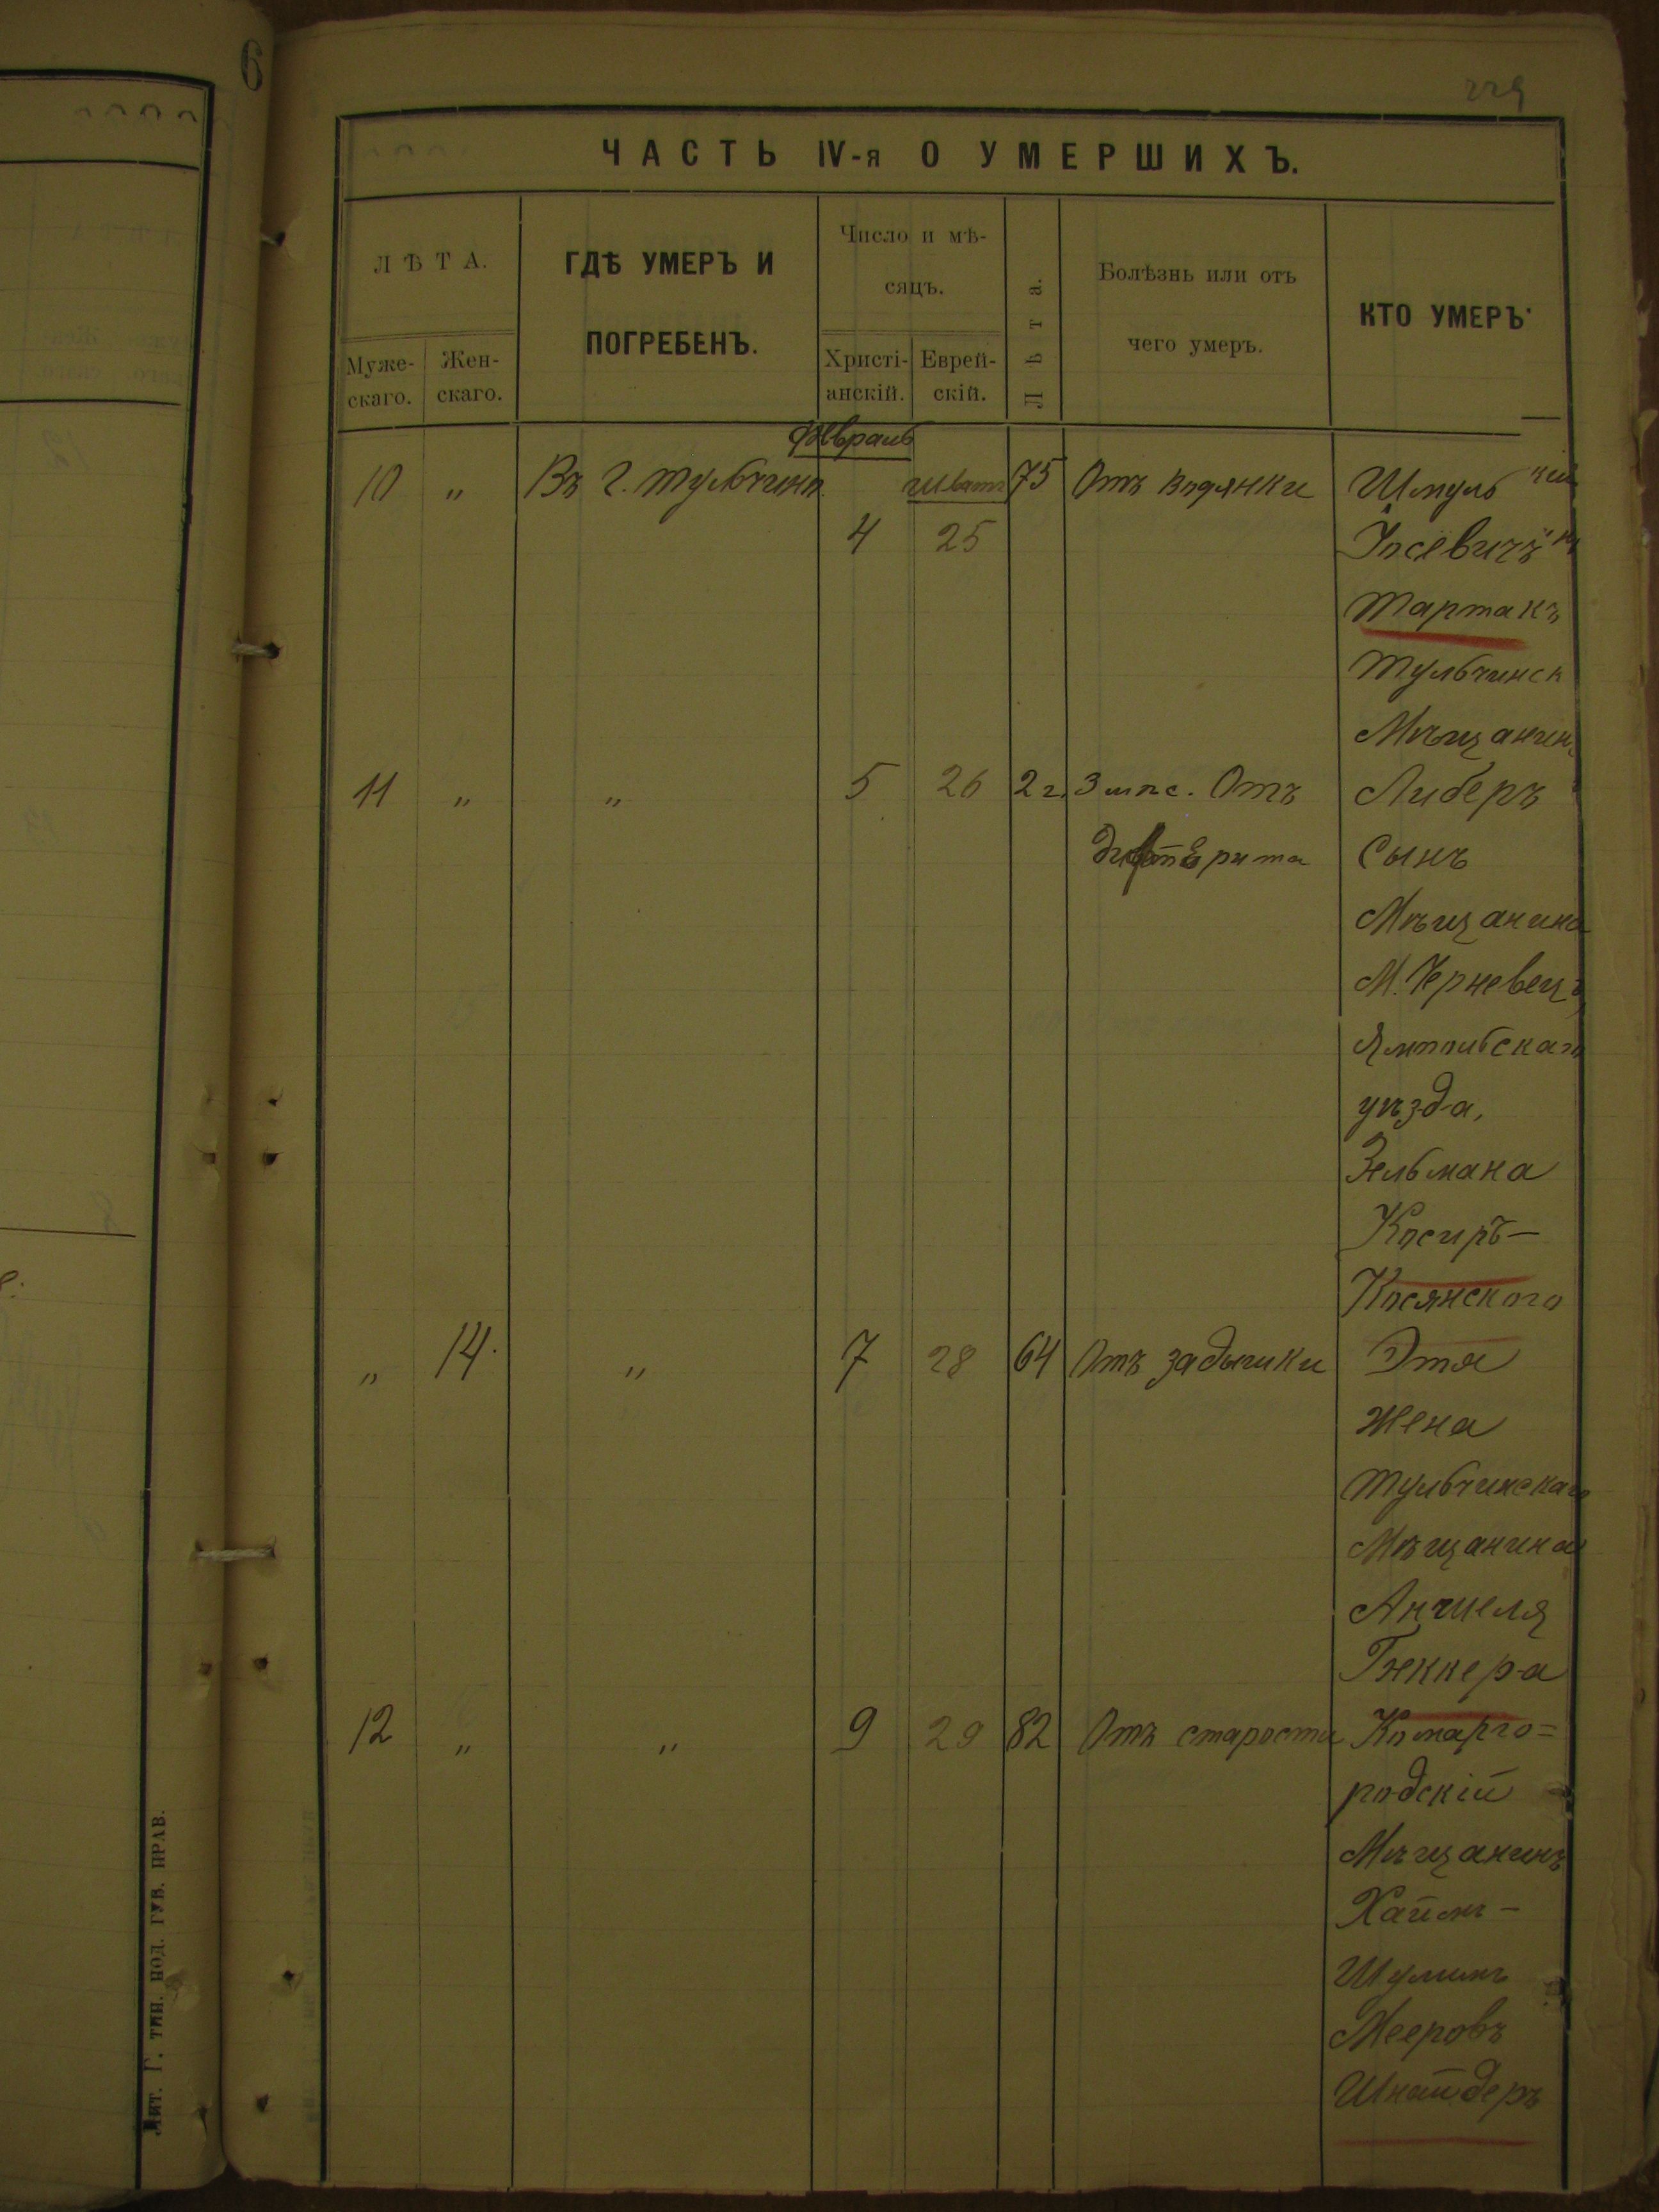 6
229
ЧАСТЬ IV-я О УМЕРШИХЪ.
ЛѢТА.
Муже-
скаго.
Жен-
скаго.
ГДѢ УМЕРЪ И
ПОГРЕБЕНЪ.
Число и мѣ-
сяцъ.
Христі-
анскій.
Еврей-
скій.
Лѣта.
Болѣзнь или отъ
чего умеръ.
КТО УМЕРЪ
Февраль
10 " Въ г. Тульчинѣ Шватъ 75 Отъ водянки Шмуль
4 25 Іосевичъ
Тартакъ
Тульчинск
Мѣщанинъ
11 " " 5 26 2 г. 3 мѣс. Отъ Либеръ
дифтерита Сынъ
Мѣщанина
М. Черневецъ
Ямпольскаго
уѣзда,
Зельмана
Косиръ-
Косянского
" 14. " 7 28 64 Отъ задышки Этя
жена
Тульчинскаго
Мѣщанина
Аншеля
Геккера
12 " " 9 29 82 Отъ старости Комарго=
родскій
Мѣщанинъ
Хаимъ-
Шулимъ
Мееровъ
Шнайдеръ
Лит. Г. тип. под. губ. прав.